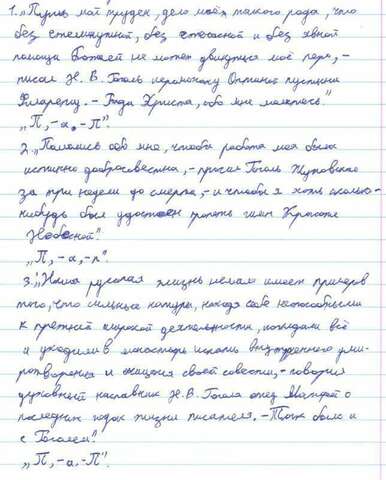 1. „Путь мой труден, дело моё такого рода, что
без ежеминутной, без ежечасной и без явной
помощи Божией не может двинуться моё перо, –
писал Н. В. Гоголь иеромонаху Оптиной пустыни
Филарету. – Ради Христа, обо мне молитесь."
„П, – а, – П".
2. „Помолись обо мне, чтобы работа моя была
истинно добросовестна, – просил Гоголь Жуковского
за три недели до смерти, – и чтобы я хоть сколько-
нибудь был удостоен пропеть гимн Красоте
Небесной".
„П, – а, – п".
3. „Наша русская жизнь немало имеет примеров
того, что сильные натуры, находя себя неспособными
к прежней широкой деятельности, покидали всё
и уходили в монастырь искать внутреннего уми-
ротворения и очищения своей совести, – говорил
духовный наставник Н. В. Гоголя отец Матфей о
последних годах жизни писателя. – Так было и
с Гоголем".
„П, – а. – П".